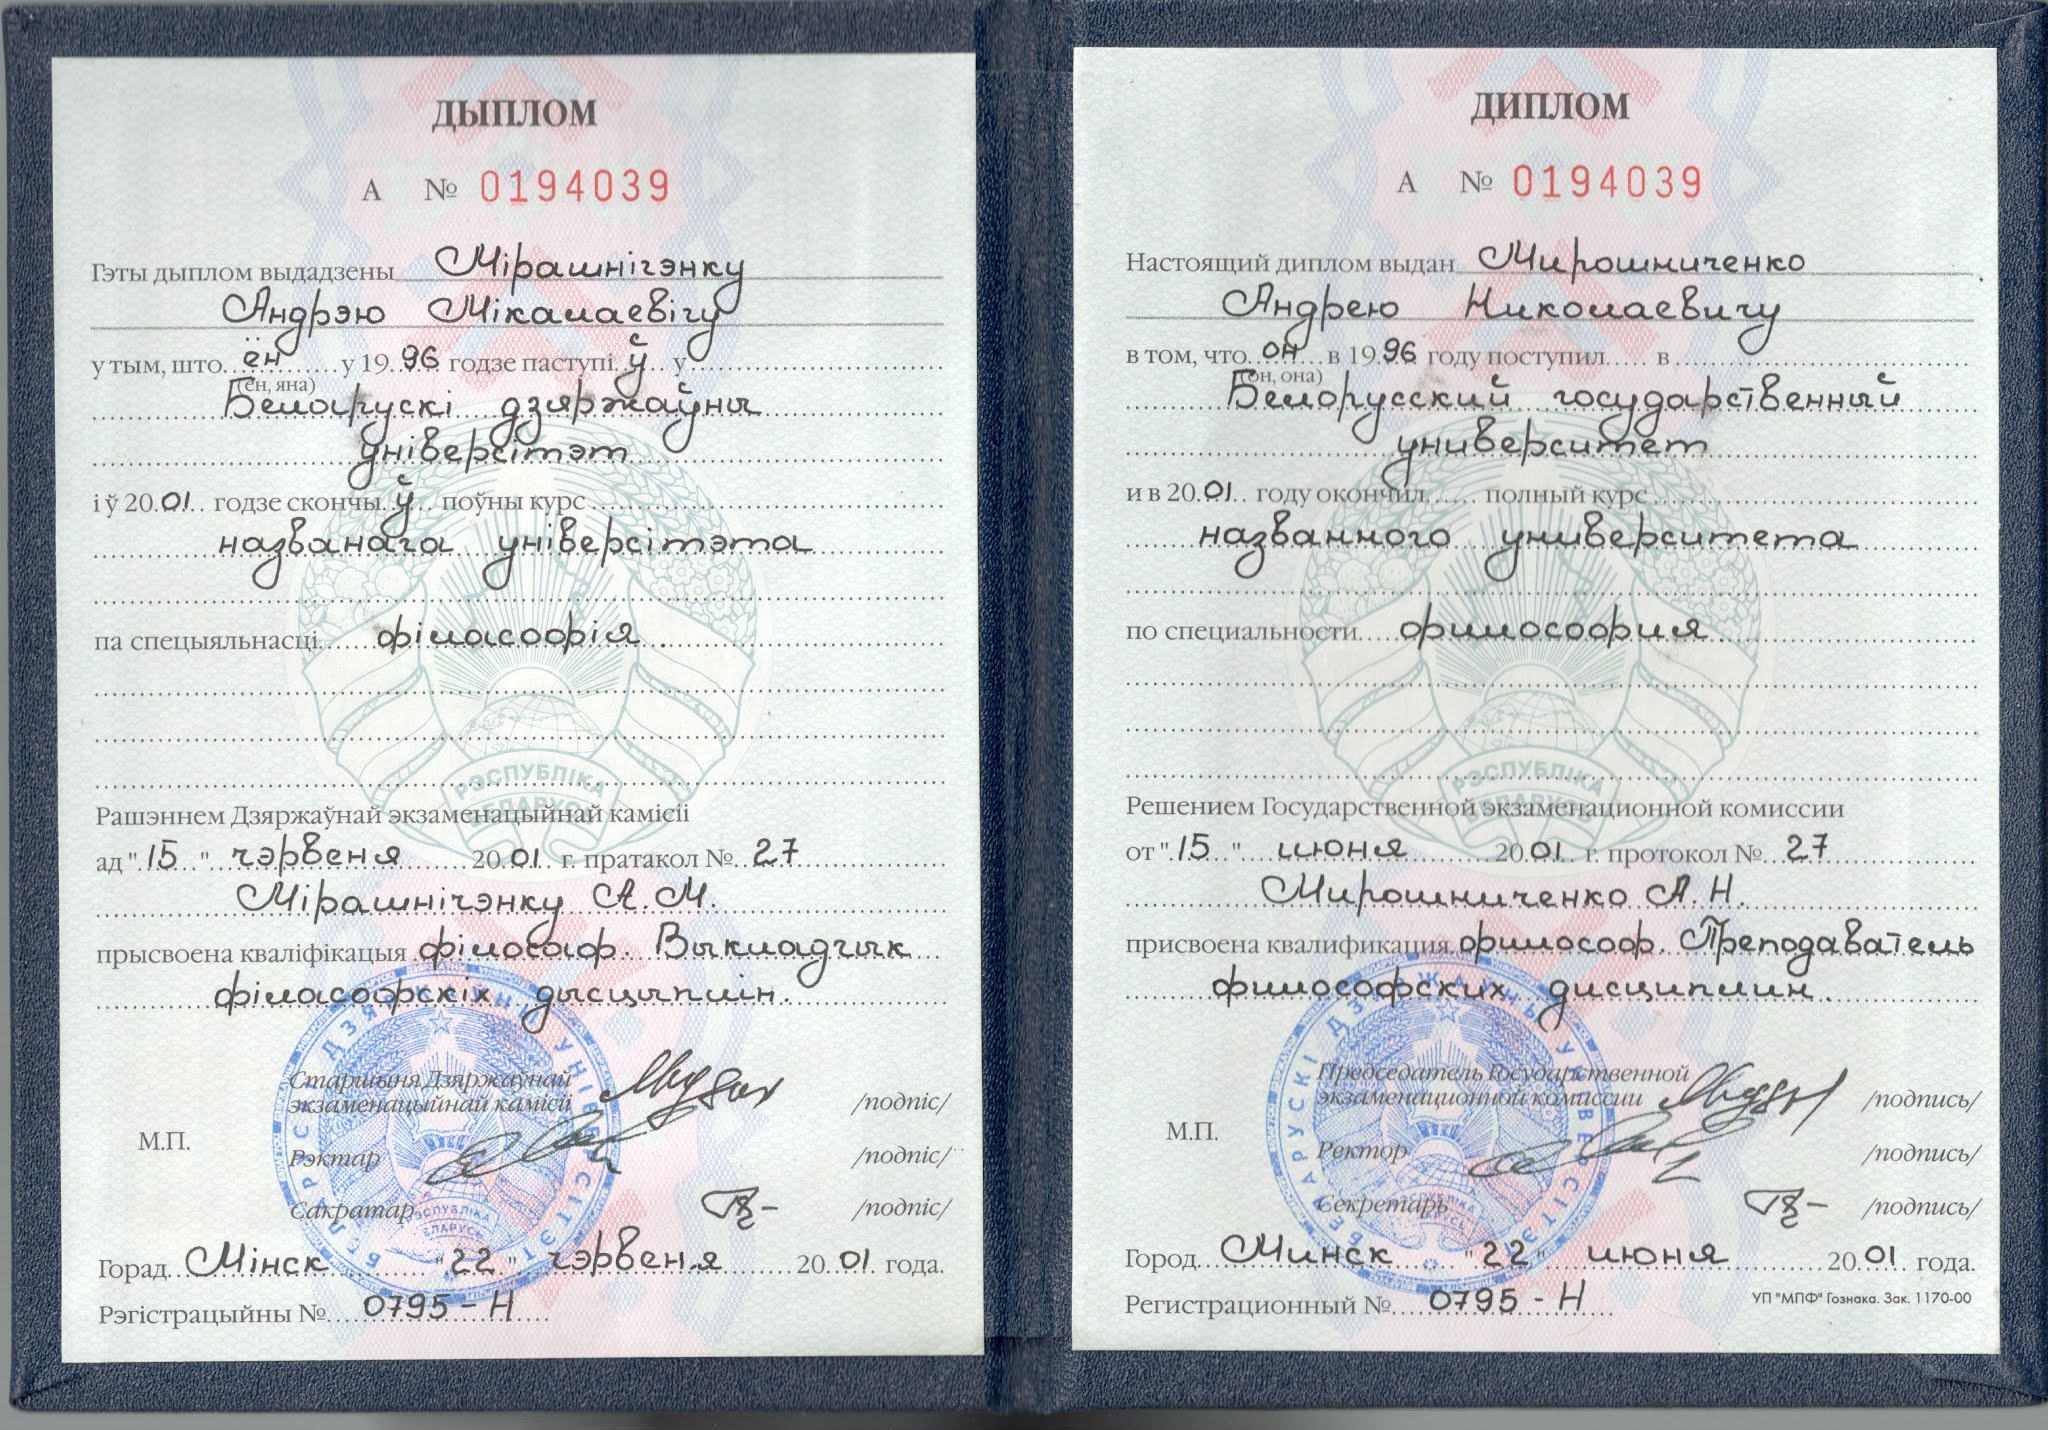 ДЫПЛОМ
А № 0194039
Гэты дыплом выдадзены Мірашнічэнку
Андрэю Мікалаевічу
у тым, што ён у 1996 годзе паступіў у
(ён, яна)
Беларускі дзяржаўны
універсітэт
і ў 2001 годзе скончыў поўны курс
названага універсітэта
па спецыяльнасці філасофія.
Рашэннем Дзяржаўнай экзаменацыйнай камісіі
ад "15" чэрвеня 2001 г. пратакол № 27
Мірашнічэнку А.М.
прысвоена кваліфікацыя філосаф. Выкладчык
філасофскіх дысцыплін.
Старшыня Дзяржаўнай
экзаменацыйнай камісіі /подпіс/
М.П.
Рэктар /подпіс/
Сакратар /подпіс/
Горад Мінск "22" чэрвеня 2001 года.
Рэгістрацыйны № 0795-Н
РЭСПУБЛІКА
БЕЛАРУСЬ
БЕЛАРУСКІ ДЗЯРЖАЎНЫ УНІВЕРСІТЭТ
ДИПЛОМ
А № 0194039
Настоящий диплом выдан Мирошниченко
Андрею Николаевичу
в том, что он в 1996 году поступил в
(он, она)
Белорусский государственный
университет
и в 2001 году окончил полный курс
названного университета
по специальности философия
Решением Государственной экзаменационной комиссии
от "15" июня 2001 г. протокол № 27
Мирошниченко А.Н.
присвоена квалификация философ. Преподаватель
философских дисциплин.
Председатель Государственной
экзаменационной комиссии /подпись/
М.П.
Ректор /подпись/
Секретарь /подпись/
Город Минск "22" июня 2001 года.
Регистрационный № 0795-Н
УП "МПФ" Гознака. Зак. 1170-00
РЭСПУБЛІКА
БЕЛАРУСЬ
БЕЛАРУСКІ ДЗЯРЖАЎНЫ УНІВЕРСІТЭТ